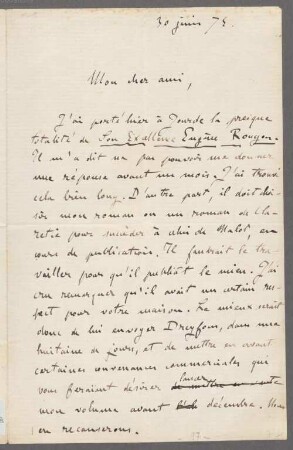 30 juin 75.
Mon cher ami,
J'ai porté hier à Jourde la presque
totalité de Son Excellence Eugène Rougon.
Il m'a dit ne pas pouvoir me donner
une réponse avant un mois. J'ai trouvé
cela bien long. D'autre part, il doit choi-
sir mon roman ou un roman de Cla-
retie pour succéder à celui de Malot, en
cours de publication. Il faudrait le tra-
vailler pour qu'il publiât le mien. J'ai
cru remarquer qu'il avait un certain res-
pect pour votre maison. Le mieux serait
donc de lui envoyer Dreyfous, dans une
huitaine de jours, et de mettre en avant
certaines convenances commerciales qui
vous feraient désirer lancer de mettre en vente
mon volume avant décembre. Nous
en recauserons.